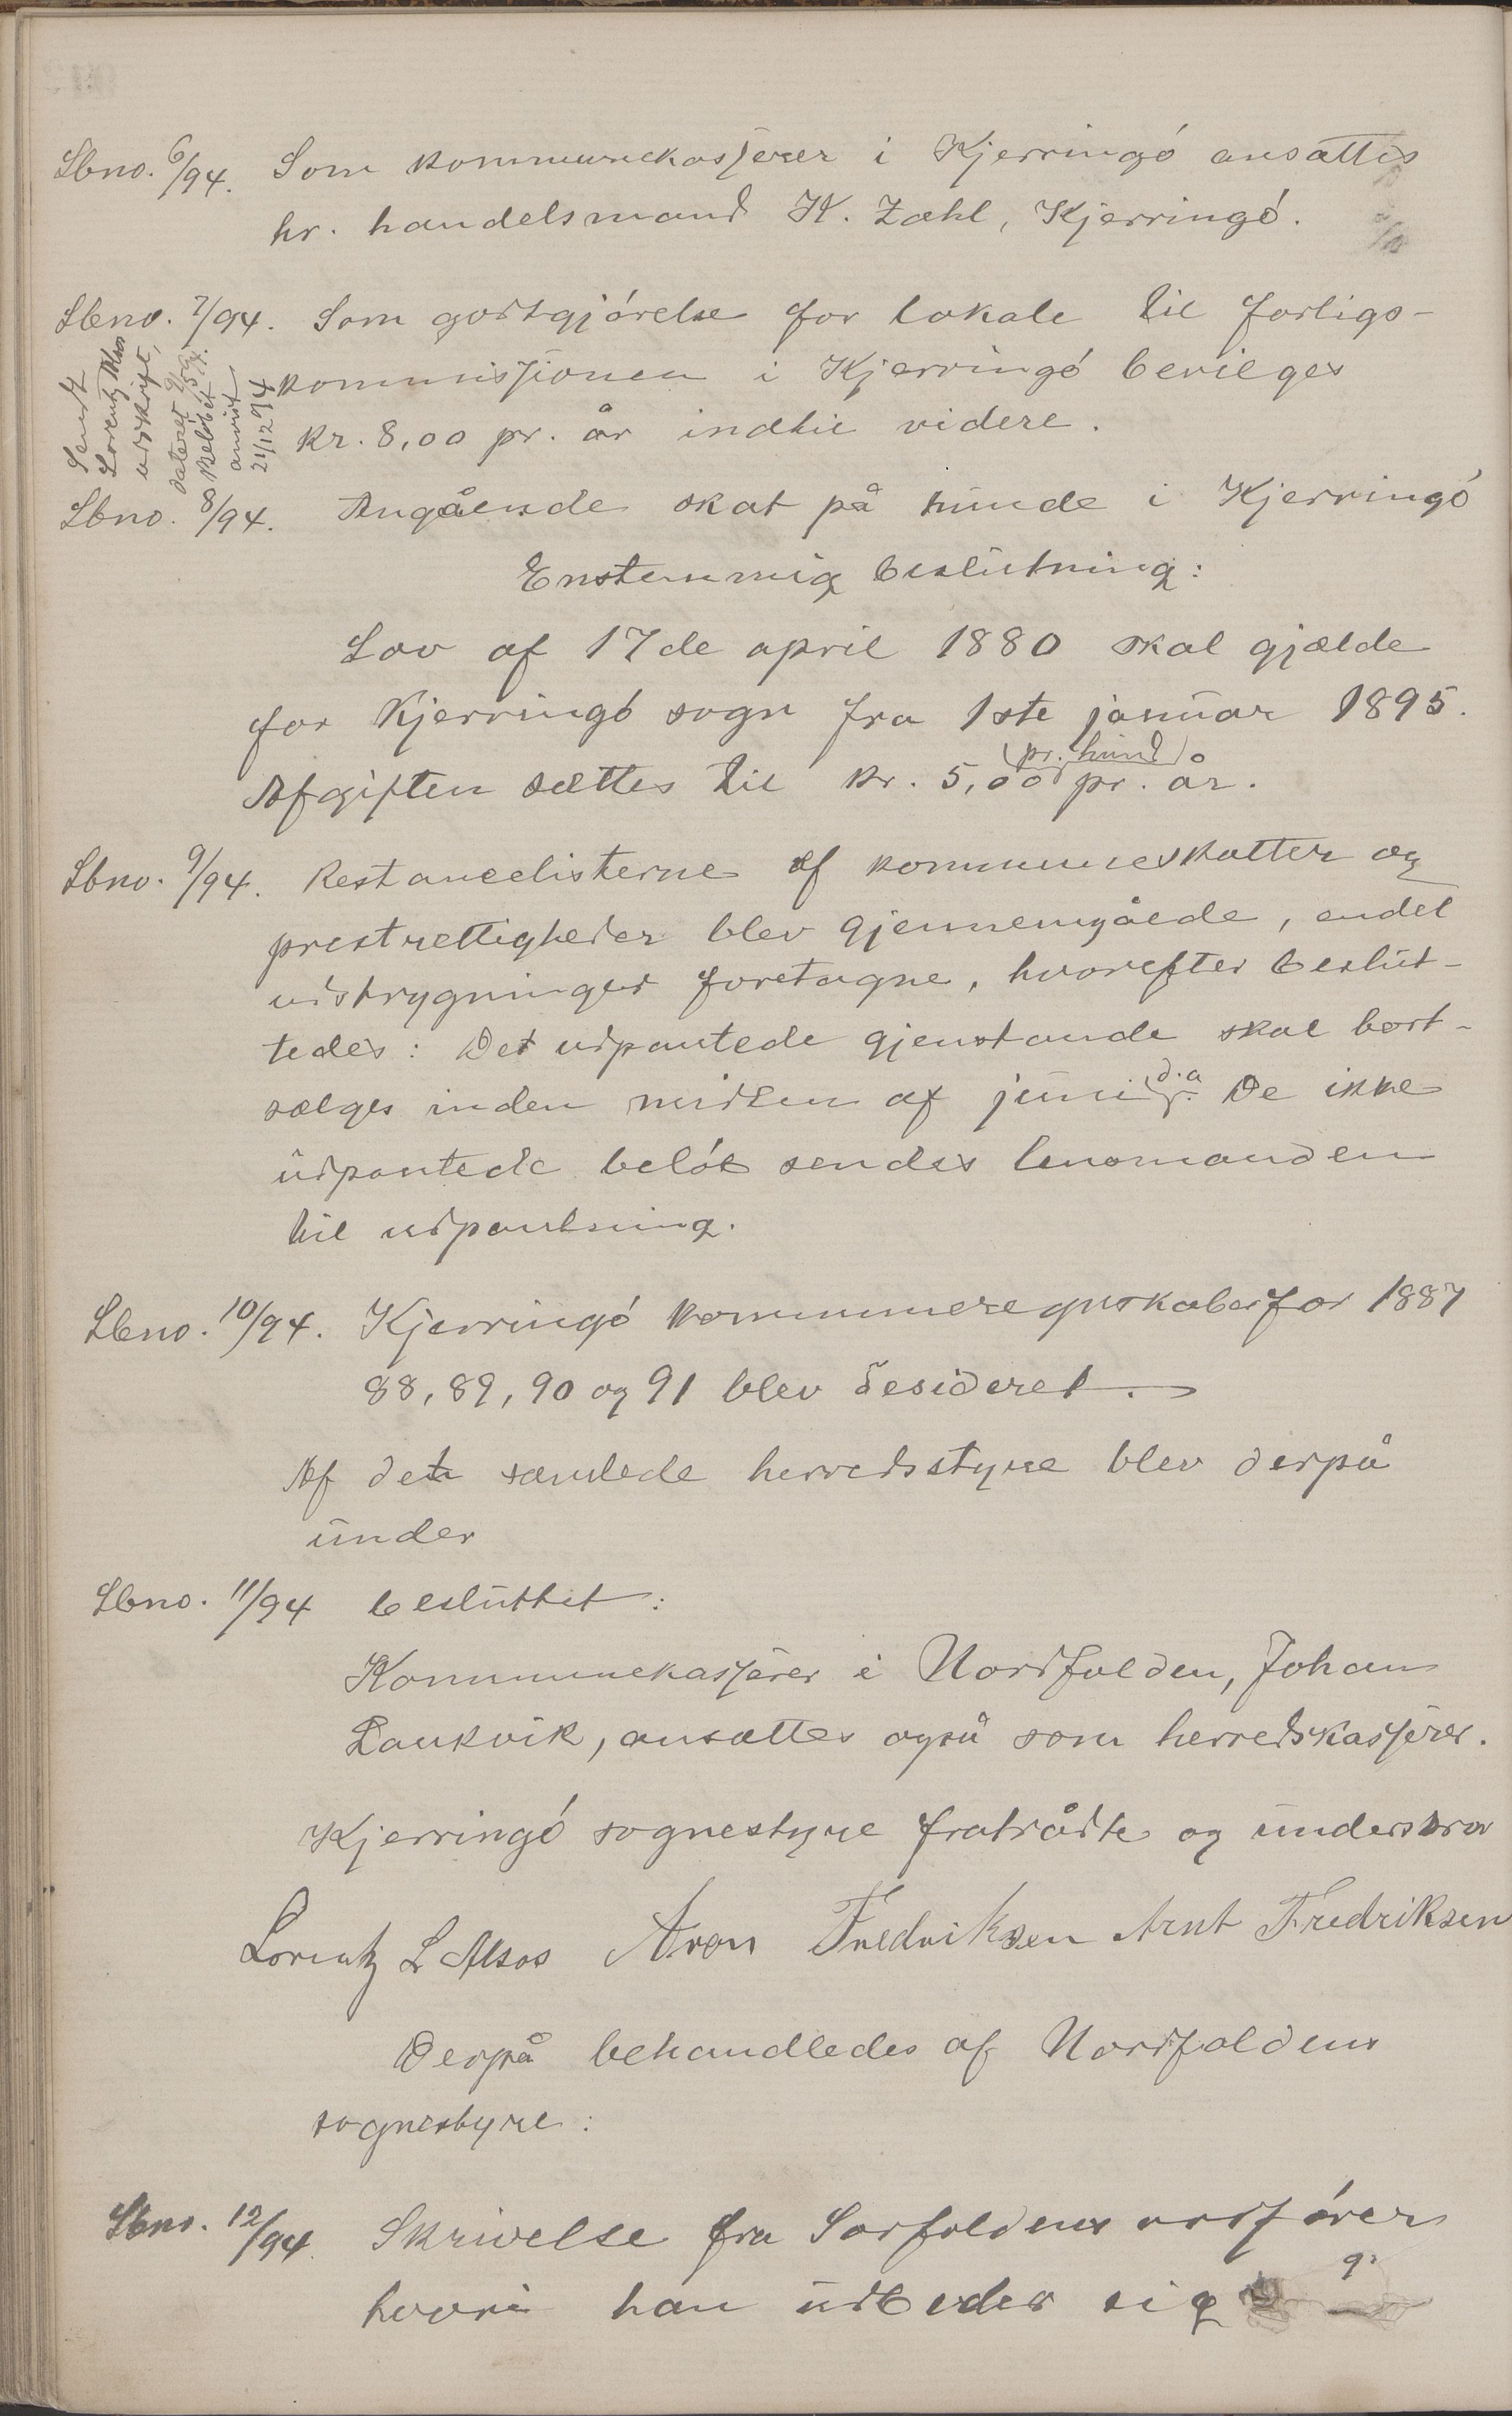 Lbno. 6/94. Som kommunekasserer i Kjerringó ansættes
hr. handelsmand K. Zahl, Kjerringó.
Lbno. 7/94. Som godtgjórelse for lokale til forligs-
kommissionen i Kjerringó bevilges
kr. 8,00 pr. år indtil videre.
Sendt
Lorentz Alsos
udskrift,
dateret
Belóbet
anvist
21/12 94
Lbno. 8/94. Angående skat på hunde i Kjerringó
Enstemmig beslutning:
Lov af 17de april 1880 skal gjælde
for Kjerringó sogn fra 1ste januar 1895.
Afgiften sættes til kr. 5,00 (pr. hund) pr. år.
Lbno. 9/94. Restancelisterne af kommuneskatter og
prestrettigheder blev gjennemgåede, endel
udstrygninger foretagne, hvorefter beslut-
tedes: Det udpantede gjenstande skal bort-
sælges inden midten af juni d.a. De ikke
udpantede belób sendes lensmanden
til udpantning.
Lbno. 10/94. Kjerringó kommuneregnskaber for 1887
88, 89, 90 og 91 blev desideret.
Af det samlede herredsstyre blev derpå
under
Lbno. 11/94 besluttet:
Kommunekasserer i Nordfolden, Johan
Laukvik, ansættes også som herredskasserer.
Kjerringó sognestyre fratrådte og underskrev
Lorentz L Alsos Aron Fredriksen Arnt Fredriksen
Derpå behandledes af Nordfoldens
sognestyre:
Lbno. 12/94. Skrivelse fra Sorfoldens ordfórer
hvori han udbeder sig